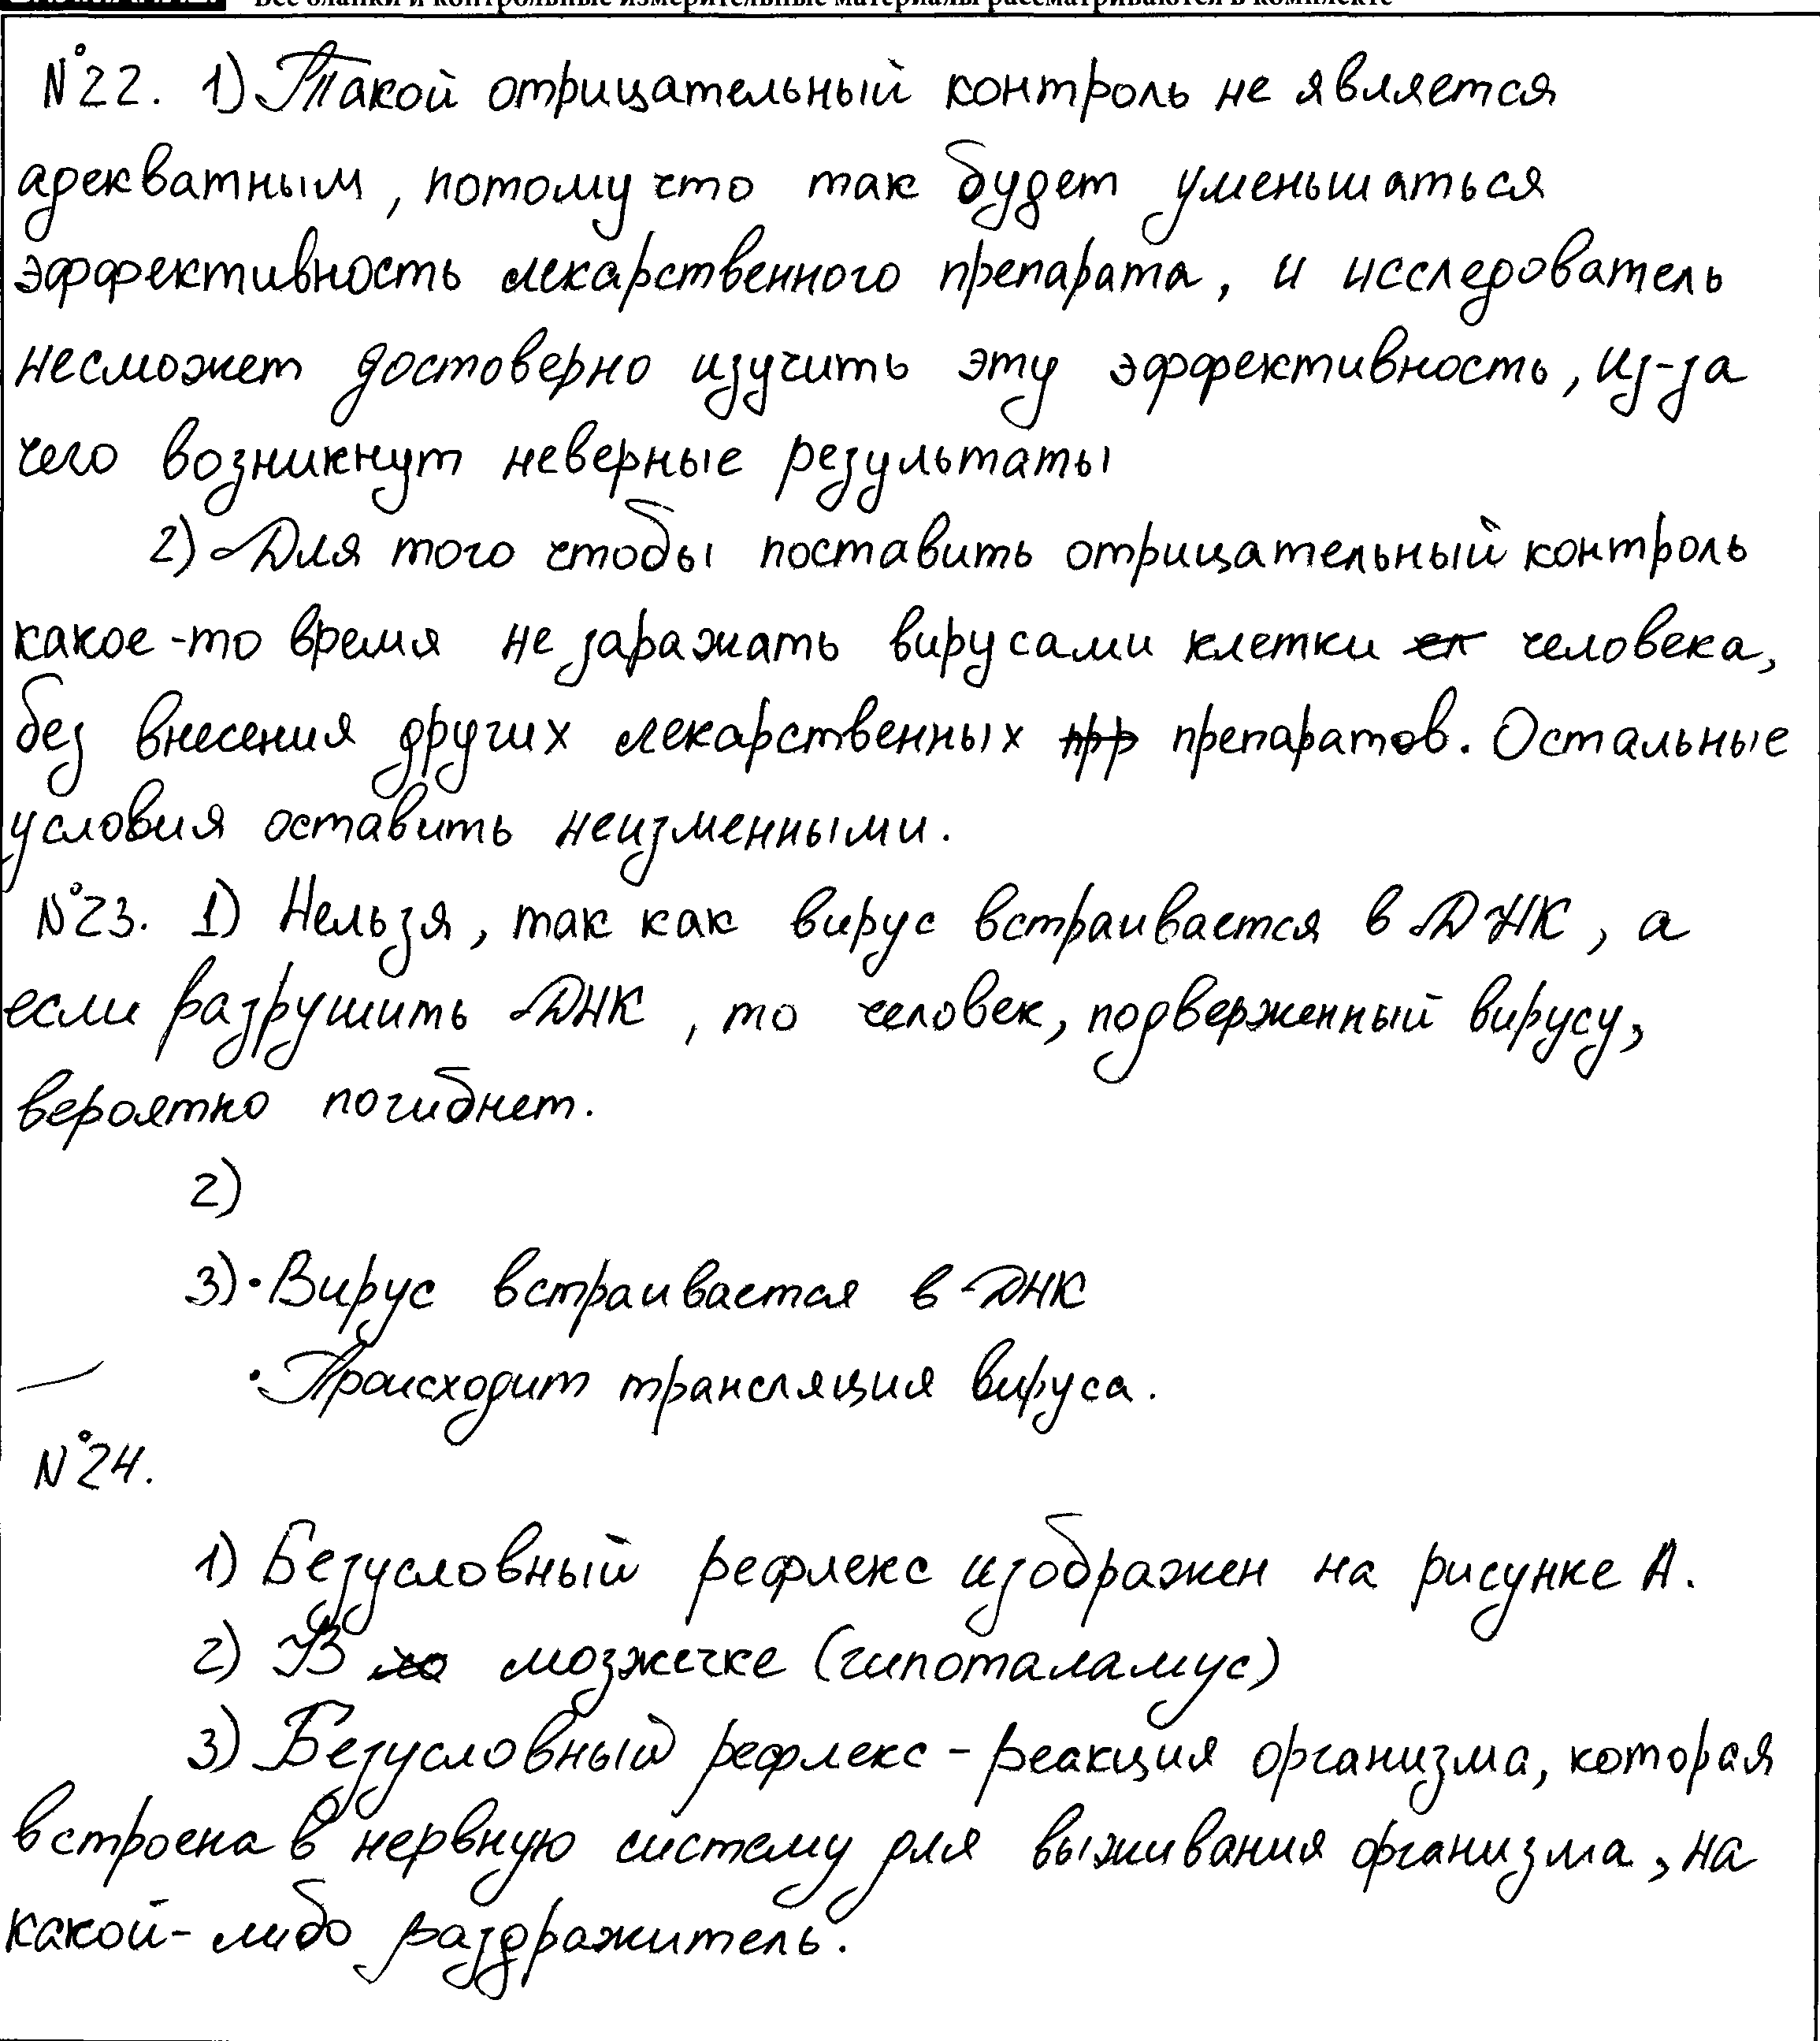 Все бланки и контрольные измерительные материалы рассматриваются в комплекте
№22. 1) Такой отрицательный контроль не является
адекватным, потому что так будет уменьшаться
эффективность лекарственного препарата, и исследователь
несможет достоверно изучить эту эффективность, из-за
чего возникнут неверные результаты
2) Для того чтобы поставить отрицательный контроль
какое-то время не заражать вирусами клетки человека,
без внесения других лекарственных препаратов. Остальные
условия оставить неизменными.
№23. 1) Нельзя, так как вирус встраивается в ДНК, а
если разрушить ДНК, то человек, подверженный вирусу,
вероятно погибнет.
2)
3) • Вирус встраивается в ДНК
• Происходит трансляция вируса.
№24.
1) Безусловный рефлекс изображен на рисунке А.
2) В мозжечке (гипоталамус)
3) Безусловный рефлекс - реакция организма, которая
встроена в нервную систему для выживания организма, на
какой-либо раздражитель.